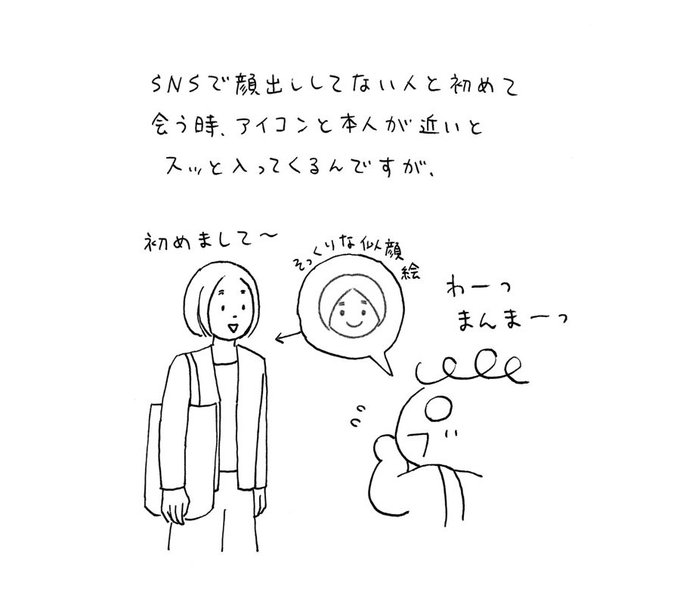 SNSで顔出ししてない人と初めて
会う時、アイコンと本人が近いと
スッと入ってくるんですが、
初めまして〜
そっくりな似顔絵
わーっ
まんまーっ